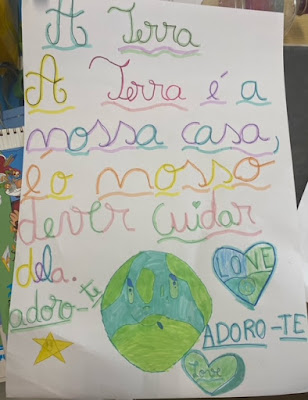 A Terra
A Terra é a
nossa casa,
é o nosso
dever cuidar
dela.
adoro-te
LOVE
ADORO-TE